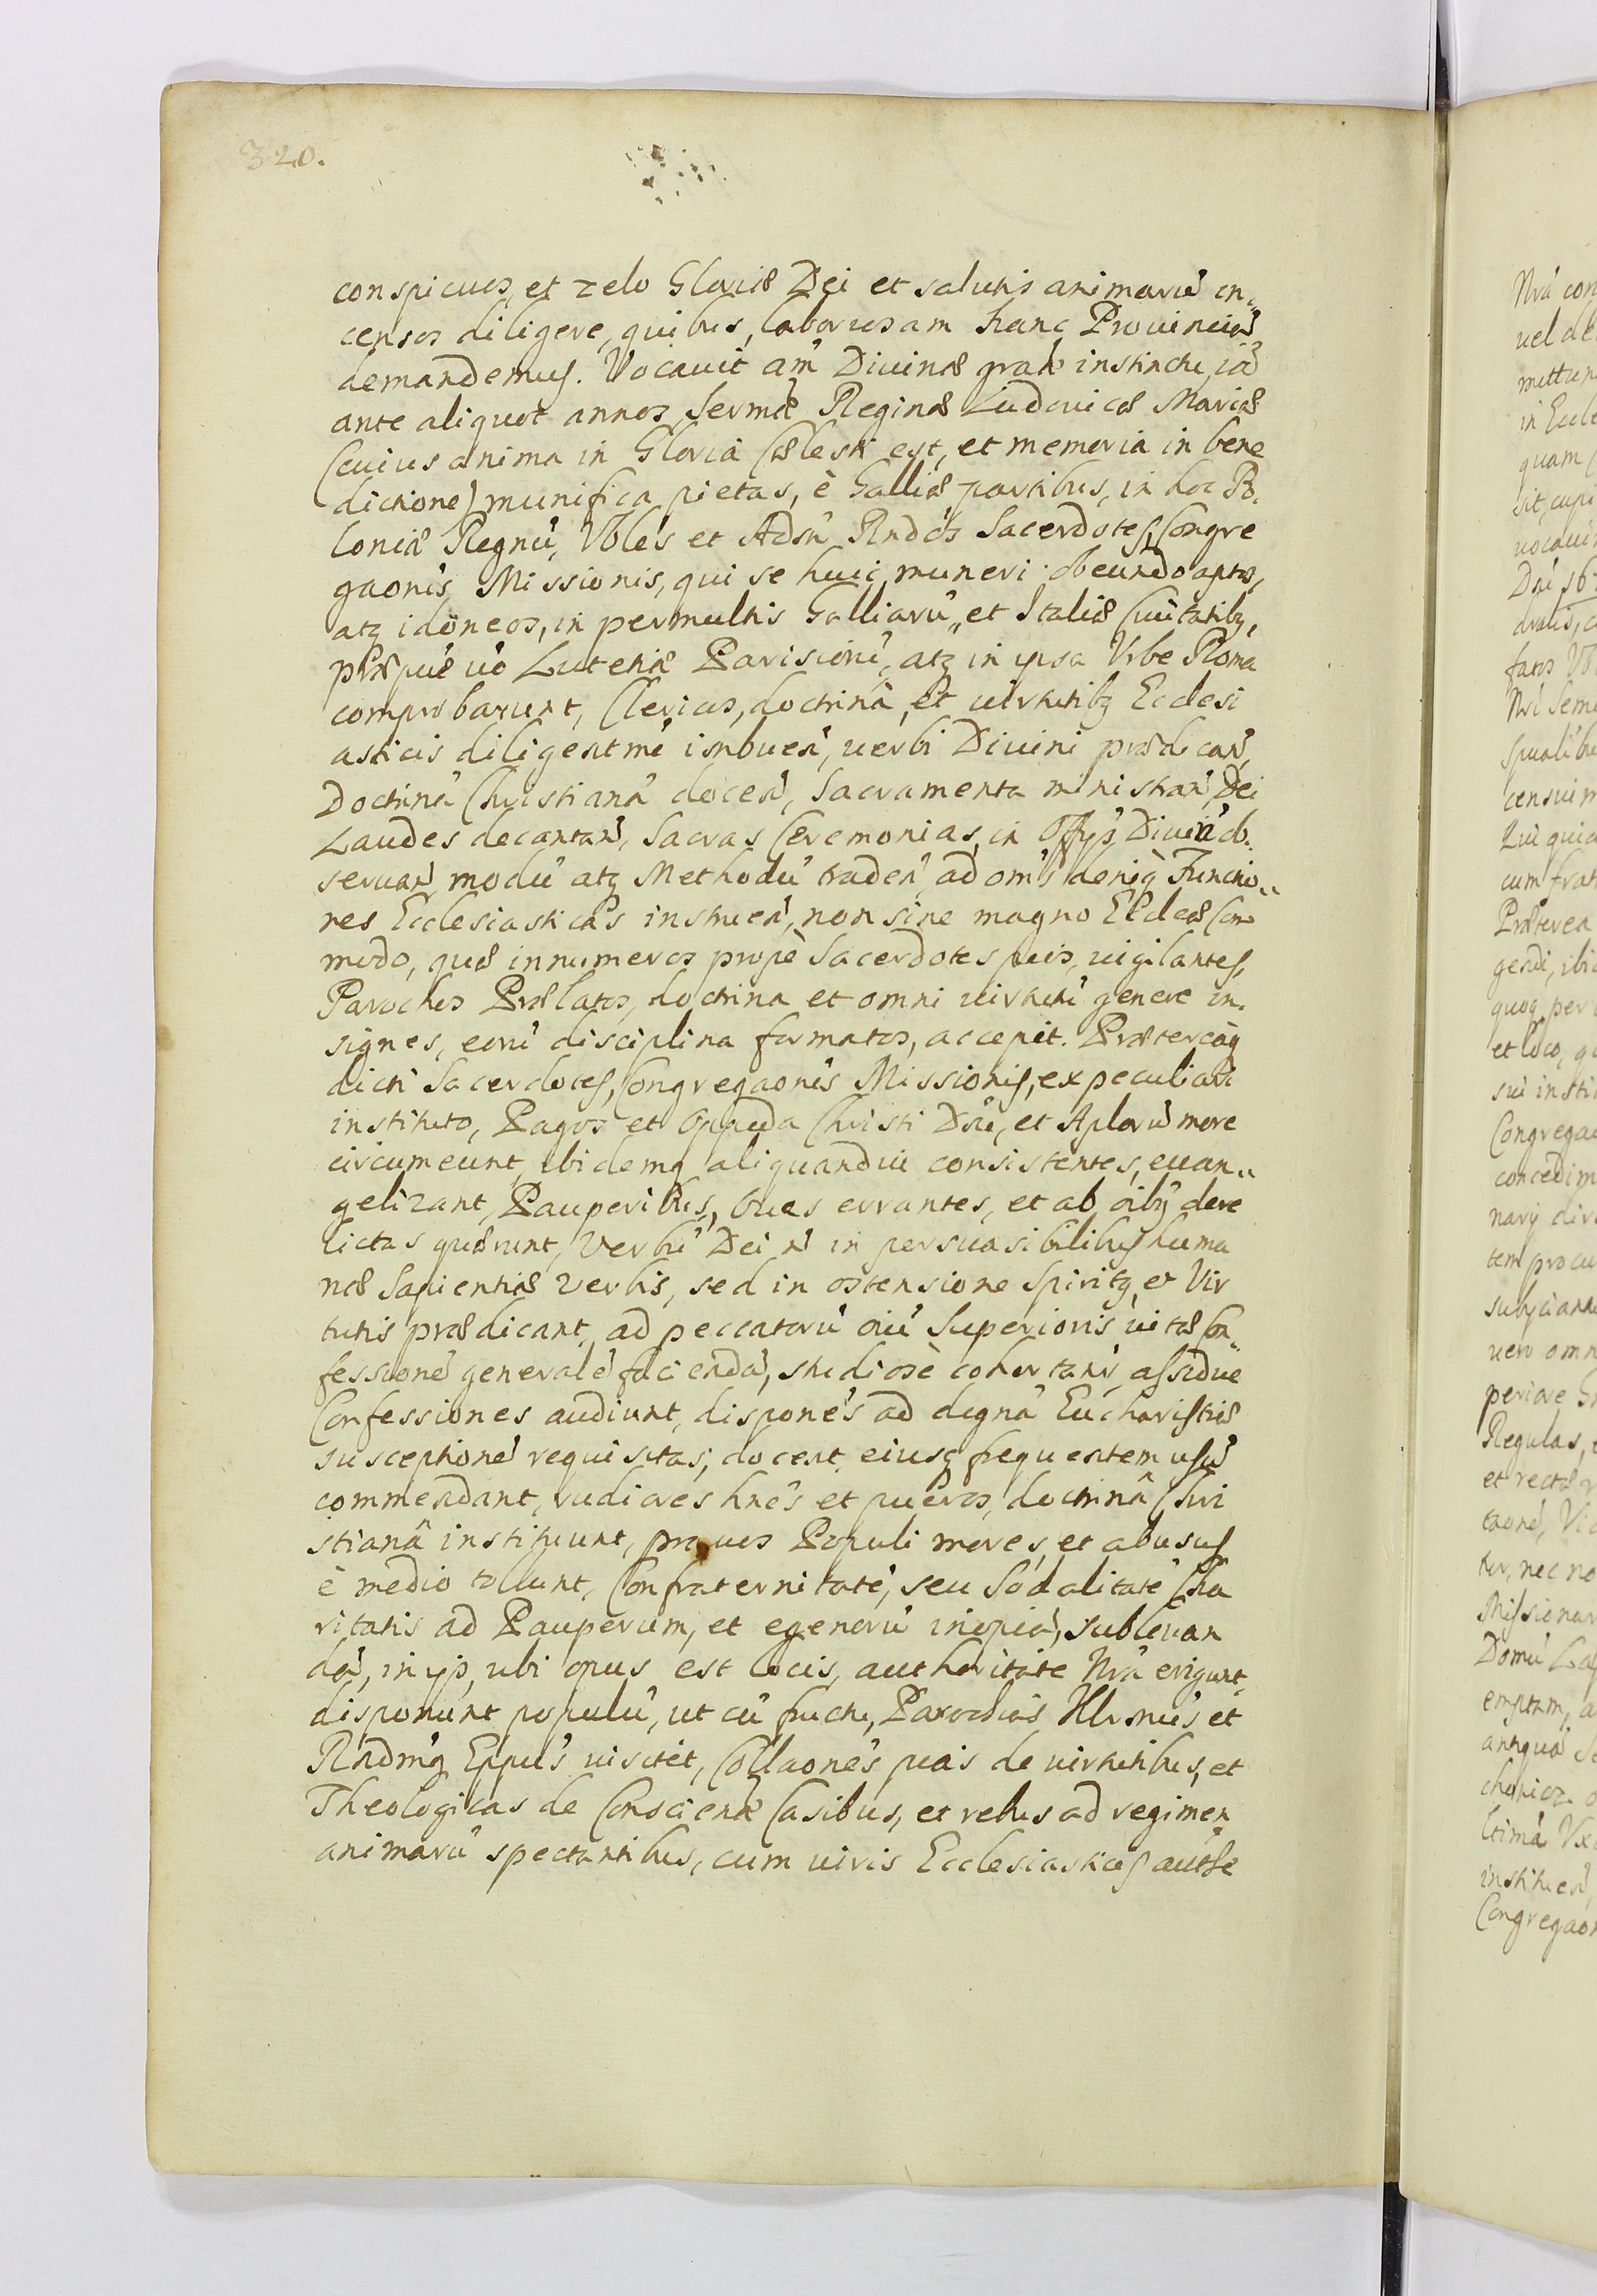 320.
conspicuos, et zelo Gloriæ Dei et salutis animarū in„
censos diligere, quibus, laboriosam hanc Prouinciā
demandemus. Vocauit aūm Diuinæ gratæ instinctu, iā
ante aliquot annos Sermæ Reginæ Ludouicæ Mariæ
(cuius anima in Gloria Cælesti est, et memoria in bene
dictione) munifica pietas, è Galliæ partibus, in hoc Po„
loniæ Regnū, Vbles et Adm̄ Rndos Sacerdotes Congre
gaonis Missionis, qui se huic muneri obeundo aptos,
atq idoneos, in permultis Galliarū, et Italiæ Ciuitatibq,
præpue uo Lutetiæ Parisiorū, atq in ipsa Vrbe Roma
comprobarunt, Clericos, doctrinâ, et uirtutibq Ecclesi
asticis diligentme imbuen̄, uerbi Diuini prædican̄,
Doctrinā Christianā docen̄, Sacramenta ministran̄, Dei
Laudes decantan̄, Sacras Ceremonias, in Offijs Diuinis ob„
seruan̄, modū atq Methodū traden̄, ad om̄s deniq Functio„
nes Ecclesiasticas instruen̄, non sine magno Eccleæ Com
modo, quæ innumeros propè Sacerdotes pios, uigilantes,
Parochos Prælatos, doctrina et omni uirtutū genere in„
signes, eorū disciplina formatos, accepit. Prætereaq
dicti Sacerdotes, Congregaonis Missionis, ex peculiari
instituto, Pagos et Oppida Christi Dn̄i, et Aplorū more
circumeunt, ibidemq aliquandiu consistentes, euan„
gelizant, Pauperibus, Oues errantes, et ab oibq dere
lictas quærunt, Verbū Dei n̄ in persuasibilibus huma
næ Sapientiæ verbis, sed in ostensione Spiritq et Vir
tutis prædicant, ad peccatorū oiū Superioris uitæ Con„
fessionē generalē faciendā, studiosè cohortant̄, assidue
Confessiones audiunt, disponēs ad dignā Eucharistiæ
susceptionē requisitas, docent, eiusq frequentem usū
commendant, rudiores hnēs et pueros, doctrinâ Chri
stianâ instituunt, prauos Populi mores, et abusus
è medio tollunt, Confraternitatē, seu Sodalitatē Cha
ritatis ad Pauperum, et egenorū inopiā, subleuan
dā, in ijs, ubi opus est locis, authoritate Nrā erigunt,
disponunt populū, ut cū fructu, Parochias Illrmus et
Rndmq Eppus uisitet, Collaones pias de uirtutibus, et
Theologicas de Conscientiæ Casibus, et rebus ad regimen
animarū spectantibus, cum uiris Ecclesiasticis
Nrā con
uel
in Eccl
quam
Præterea
et loco,
sui insti
Congrega
concedim
Regulas,
Missionar
Domū
instituen̄,
Congregaon